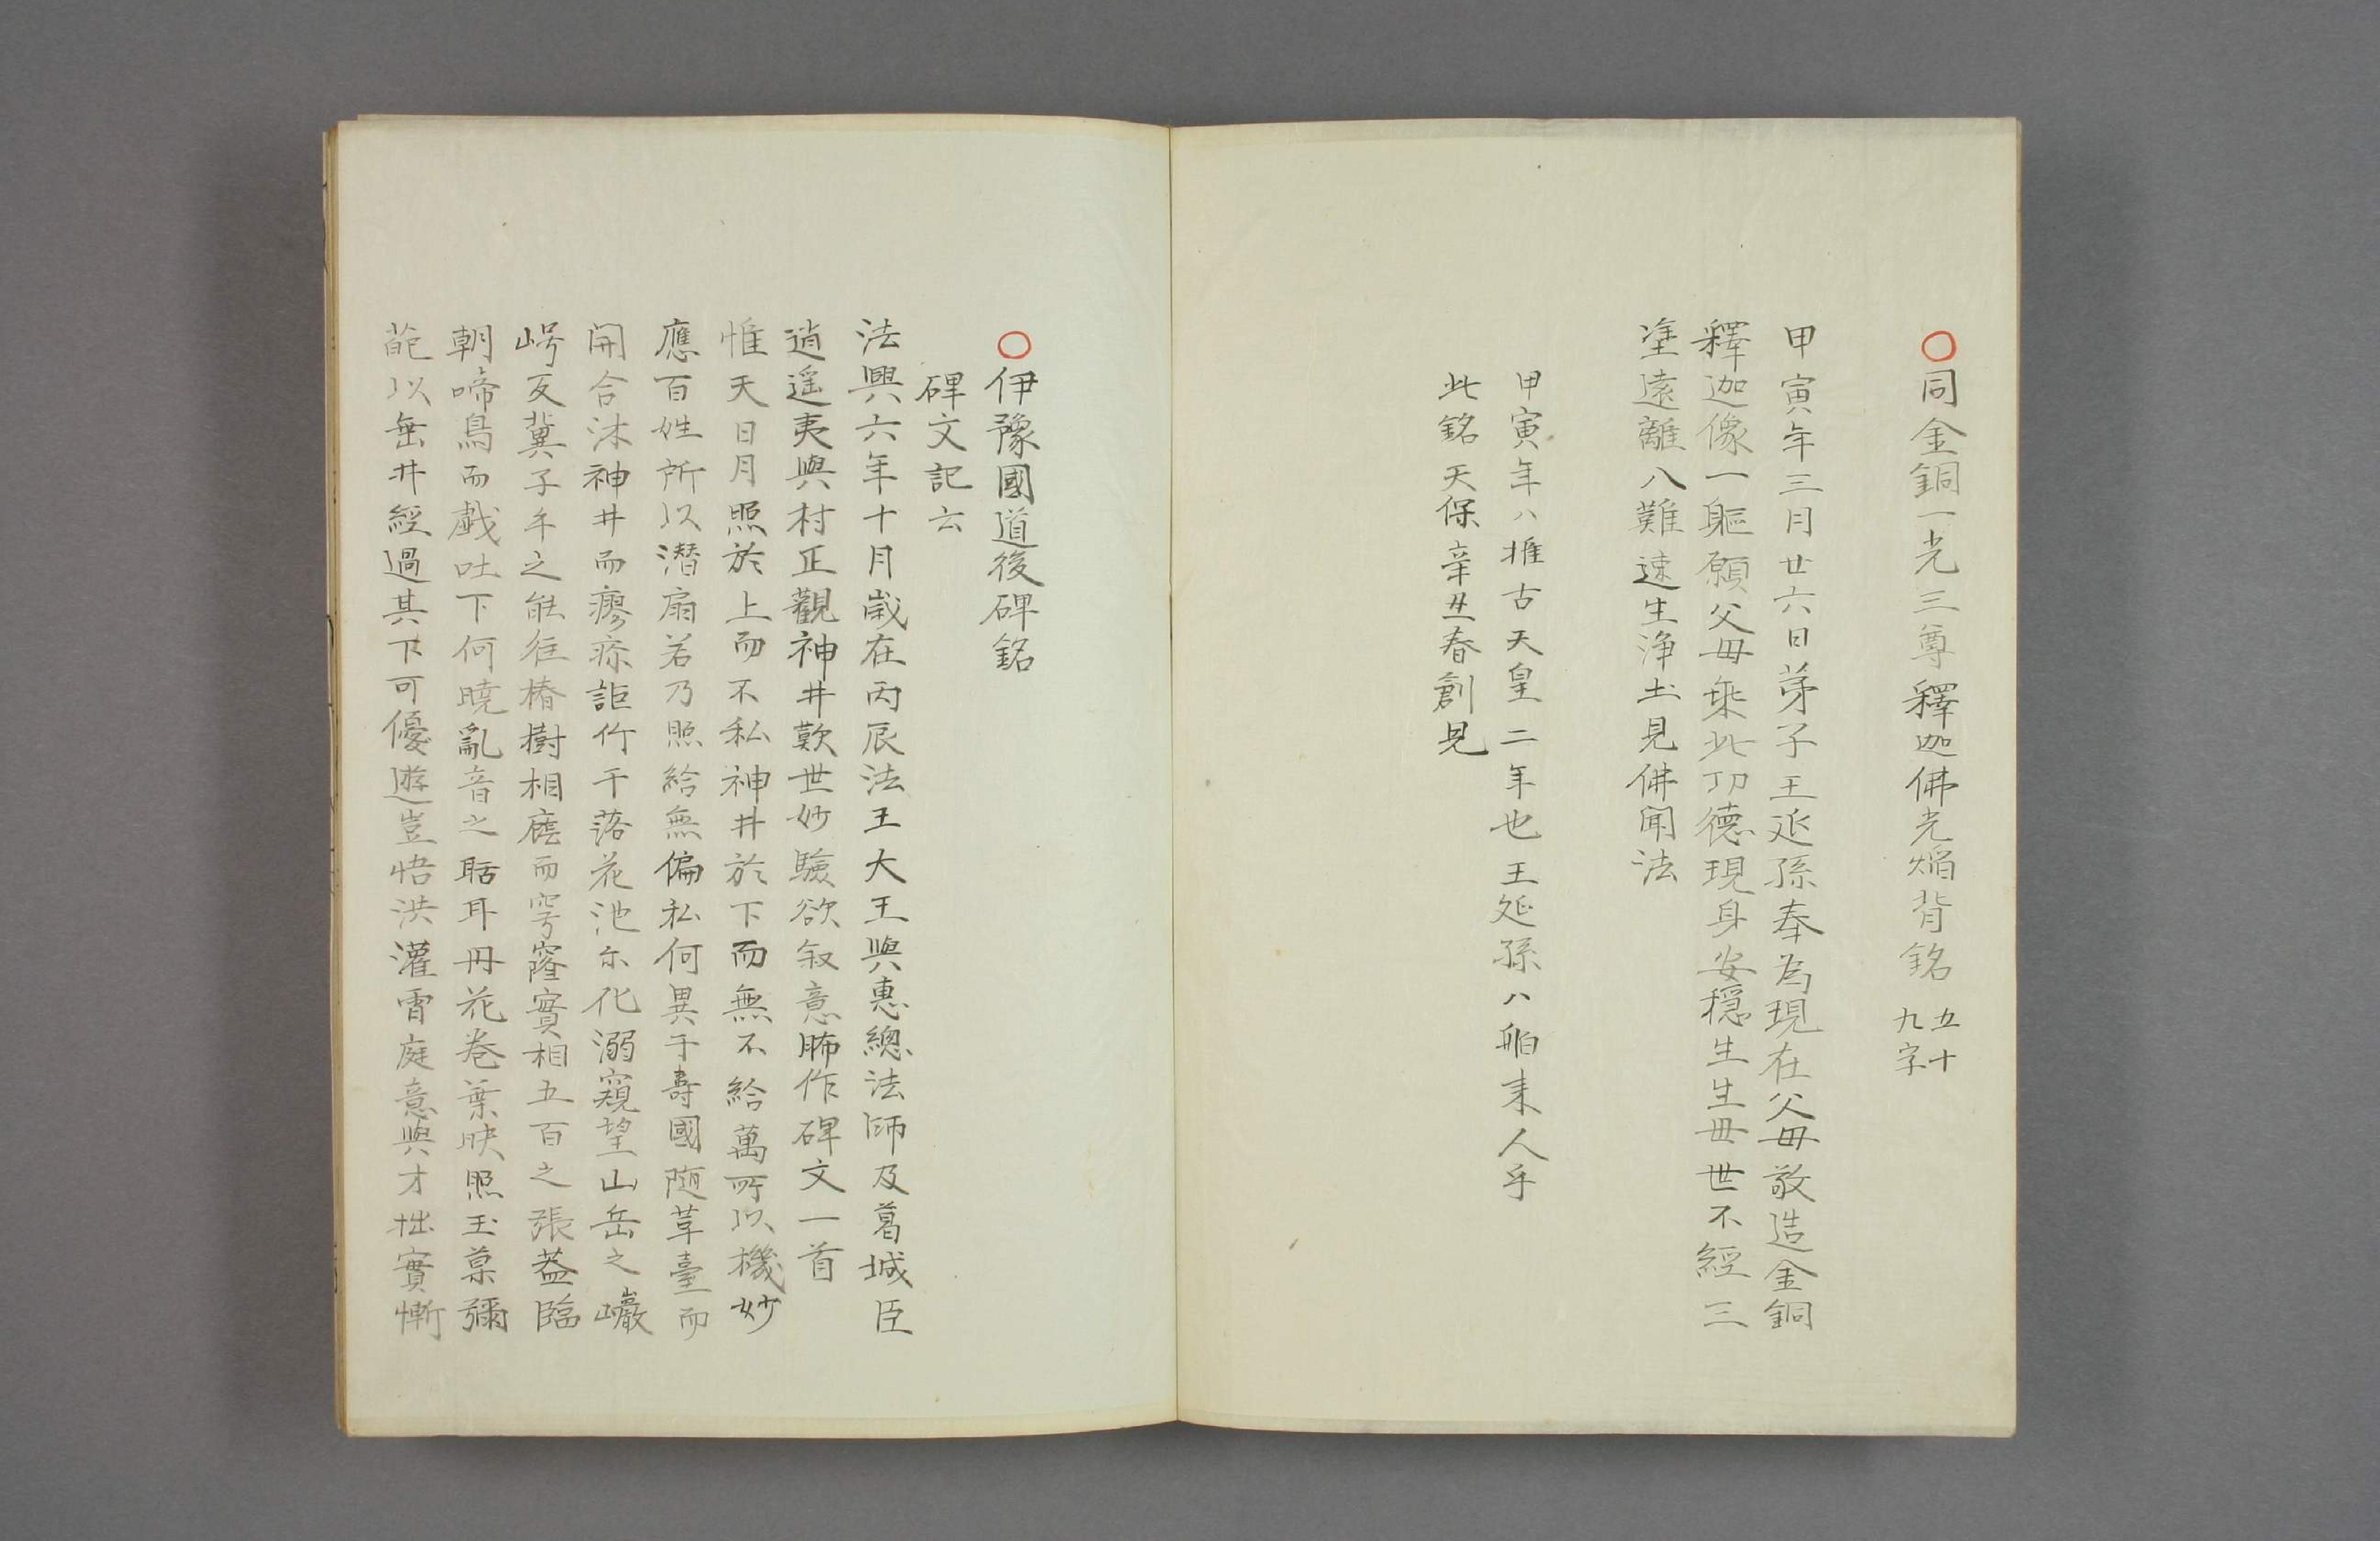 〇同金銅一光三尊釋迦佛光焔背銘 五十九字
甲寅年三月廿六日苐子王延孫奉為現在父母敬造金銅
釋迦像一軀願父母乗此㓛德現身安穩生生丗世不經三
塗遠離八難速生浄土見佛聞法
甲寅年ハ推古天皇二年也王延孫ハ舶来人乎
此銘天保辛丑春創見
〇伊豫國道後碑銘
碑文記云
法興六年十月歳在丙辰法王大王與惠總法師及葛城臣
逍遥夷與村正觀神井歎世妙驗欲叙意聊作碑文一首
惟夫日月照於上而不私神井於下而無不給萬所以機妙
應百姓所以潛扇若乃照給無偏私何異于壽國随華臺而
開合沐神井而瘳疹詎㣔于落花池尓化溺窺望山岳之巗
崿反冀子平之能往椿樹相廕而穹窿實相五百之張蓋臨
朝啼鳥而戯吐下何曉亂音之聒耳丹花巻葉映照玉菓彌
葩以垂井經過其下可優遊豈悟洪灌霄庭意與才拙實慚